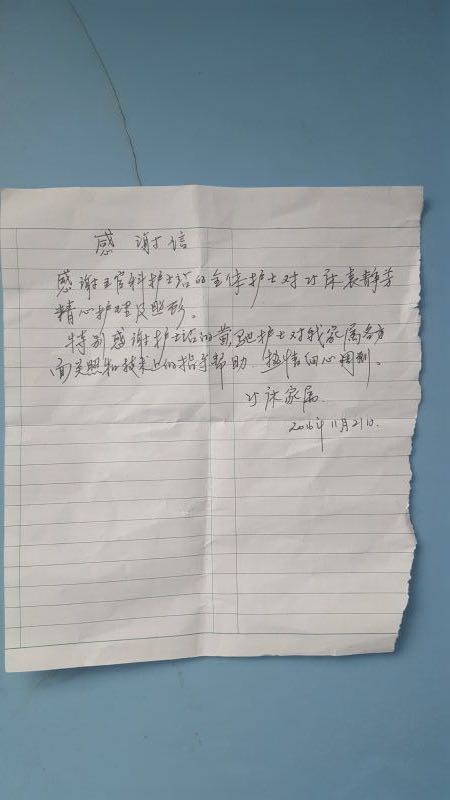 感谢信
感谢五官科护士站的全体护士对 床袁静芳
精心护理及照形。
特别感谢护士站的黄 护士对我家属各方
面关照和技术上的指导帮助 热情细心周到。
床家属
2016年11月21日.